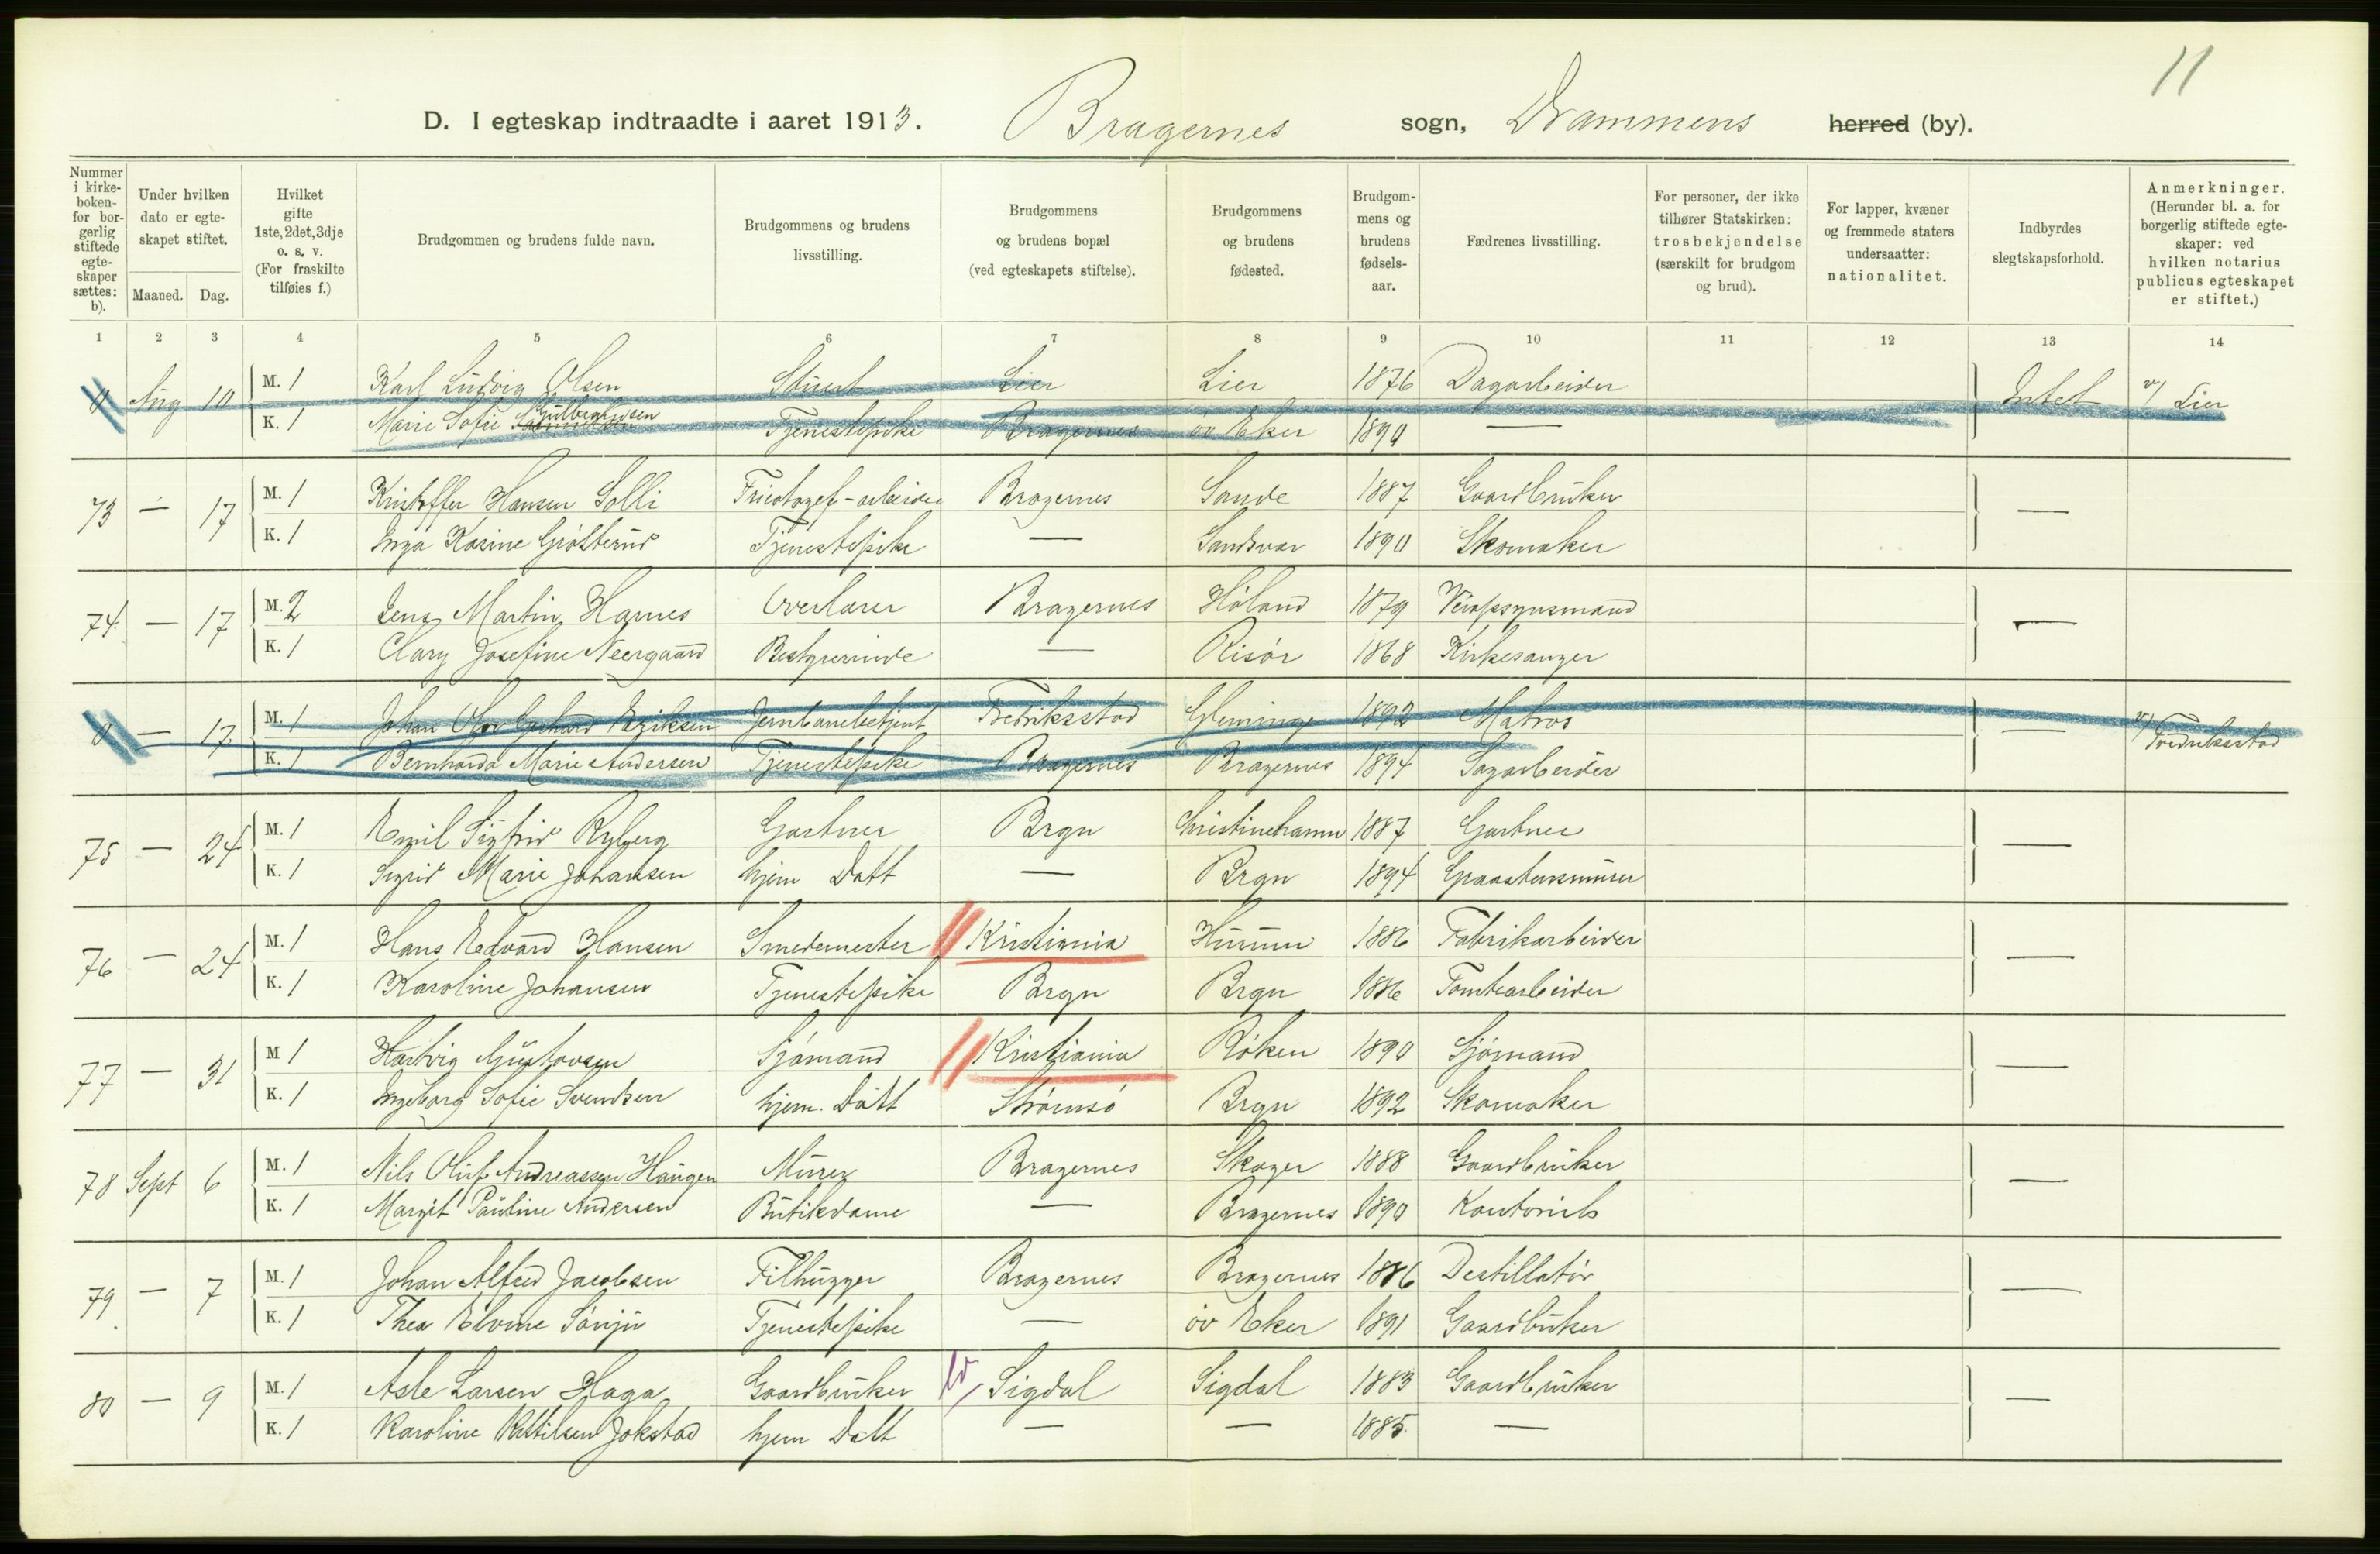 11
D. I egteskap indtraadte i aaret 1913. Bragernes sogn, Drammens herred (by).
Nummer i kirke-boken- for bor-gerlig stiftede egte-skaper sættes: b).
Under hvilken dato er egte-skapet stiftet.
Maaned. Dag.
Hvilket gifte 1ste, 2det, 3dje o. s. v. (For fraskilte tilføies f.)
Brudgommen og brudens fulde navn.
Brudgommens og brudens livsstilling.
Brudgommens og brudens bopæl (ved egteskapets stiftelse).
Brudgommens og brudens fødested.
Brudgom-mens og brudens fødsels-aar.
Fædrenes livsstilling.
For personer, der ikke tilhører Statskirken: trosbekjendelse (særskilt for brudgom og brud).
For lapper, kvæner og fremmede staters undersaatter: nationalitet.
Indbyrdes slegtskapsforhold.
Anmerkninger. (Herunder bl. a. for borgerlig stiftede egte-skaper: ved hvilken notarius publicus egteskapet er stiftet.)
1 2 3 4 5 6 7 8 9 10 11 12 13 14
0 Aug 10 M. 1 Karl Ludvig Olsen Stuert Lier Lier 1876 Dagarbeider Intet v/ Lier
K. 1 Marie Sofie Gulbrandsen Tjenestepike Bragernes öv Eker 1890 —
73 — 17 M. 1 Kristoffer Hansen Solli Tricotagef-arbeider Bragernes Sande 1887 Gaardbruker —
K. 1 Inga Karine Grötterud Tjenestepike — Sandsvær 1890 Skomaker
74 — 17 M. 2 Jens Martin Harnes Overlærer Bragernes Höland 1879 Veiopsynsmand —
K. 1 Clary Josefine Neergaard Bestyrerinde — Risör 1868 Kirkesanger
0 — 17 M. 1 Johan Olav Gerhard Eriksen Jernbanebetjent Fredriksstad Glemminge 1892 Matros — v/ Fredriksstad
K. 1 Bernharda Marie Andersen Tjenestepike Bragernes Bragernes 1894 Sagarbeider
75 — 24 M. 1 Emil Sigfrid Ryberg Gartner Brgn Christinehamn 1887 Gartner —
K. 1 Sigrid Marie Johansen hjem Datt — Brgn 1894 Graastensmurer
76 — 24 M. 1 Hans Edvard Hansen Smedemester Kristiania Hurum 1886 Fabrikarbeider —
K. 1 Karoline Johansen Tjenestepike Brgn Brgn 1886 Tomtearbeider
77 — 31 M 1 Hartvig Gustavsen Sjömand Kristiania Röken 1890 Sjömand —
K. 1 Ingeborg Sofie Svendsen hjem. Datt Strömsö Brgn 1892 Skomaker
78 Sept 6 M. 1 Nils Oluf Andreassen Haugen Murer Bragernes Skoger 1888 Gaardbruker —
K. 1 Margit Pauline Andersen Butikdame — Bragernes 1890 Kontorist
79 — 7 M. 1 Johan Alfred Jacobsen Filhugger Bragernes Bragernes 1886 Destillatör —
K. 1 Thea Elvine Sönju Tjenestepike — öv Eker 1891 Gaardbruker
80 — 9 M. 1 Asle Larsen Haga Gaardbruker Sigdal Sigdal 1883 Gaardbruker —
K. 1 Karoline Kittilsen Jokstad hjem Datt — — 1885. —